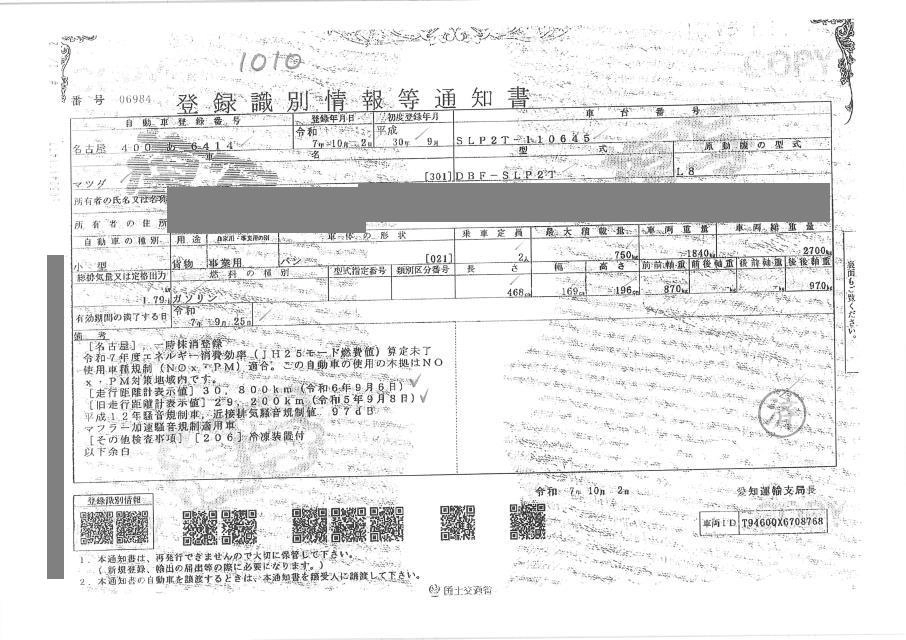 1010
番号 06984 登録識別情報等通知書
自動車登録番号 登録年月日 初度登録年月 車台番号
名古屋 400 あ 6414 令和 7年 10月 2日 平成 30年 9月 SLP2T-110645
車名 型式 原動機の型式
マツダ [301] DBF-SLP2T L8
所有者の氏名又は名称
所有者の住所
自動車の種別 用途 自家用・事業用の別 車体の形状 乗車定員 最大積載量 車両重量 車両総重量
小型 貨物 事業用 バン [021] 2人 750kg 1840kg 2700kg
総排気量又は定格出力 燃料の種別 型式指定番号 類別区分番号 長さ 幅 高さ 前前軸重 前後軸重 後前軸重 後後軸重
1.79 ガソリン 468cm 169cm 196cm 870kg -kg -kg 970kg
有効期間の満了する日 令和 7年 9月 25日
備考
[名古屋], 一時抹消登録
令和7年度エネルギー消費効率(JH25モード燃費値)算定未了
使用車種規制(NOx・PM)適合。この自動車の使用の本拠はNO
x・PM対策地域内です。
[走行距離計表示値] 30,800km(令和6年9月6日)
[旧走行距離計表示値] 29,200km(令和5年9月8日)
平成12年騒音規制車、近接排気騒音規制値 97dB
マフラー加速騒音規制適用車
[その他検査事項] [206]冷凍装置付
以下余白
済
裏面もご覧ください。
令和 7年 10月 2日 愛知運輸支局長
登録識別情報
車両ID T9460QX6708768
1.本通知書は、再発行できませんので大切に保管して下さい。
(新規登録、輸出の届出等の際に必要になります。)
2.本通知書の自動車を譲渡するときは、本通知書を譲受人に譲渡して下さい。
国土交通省